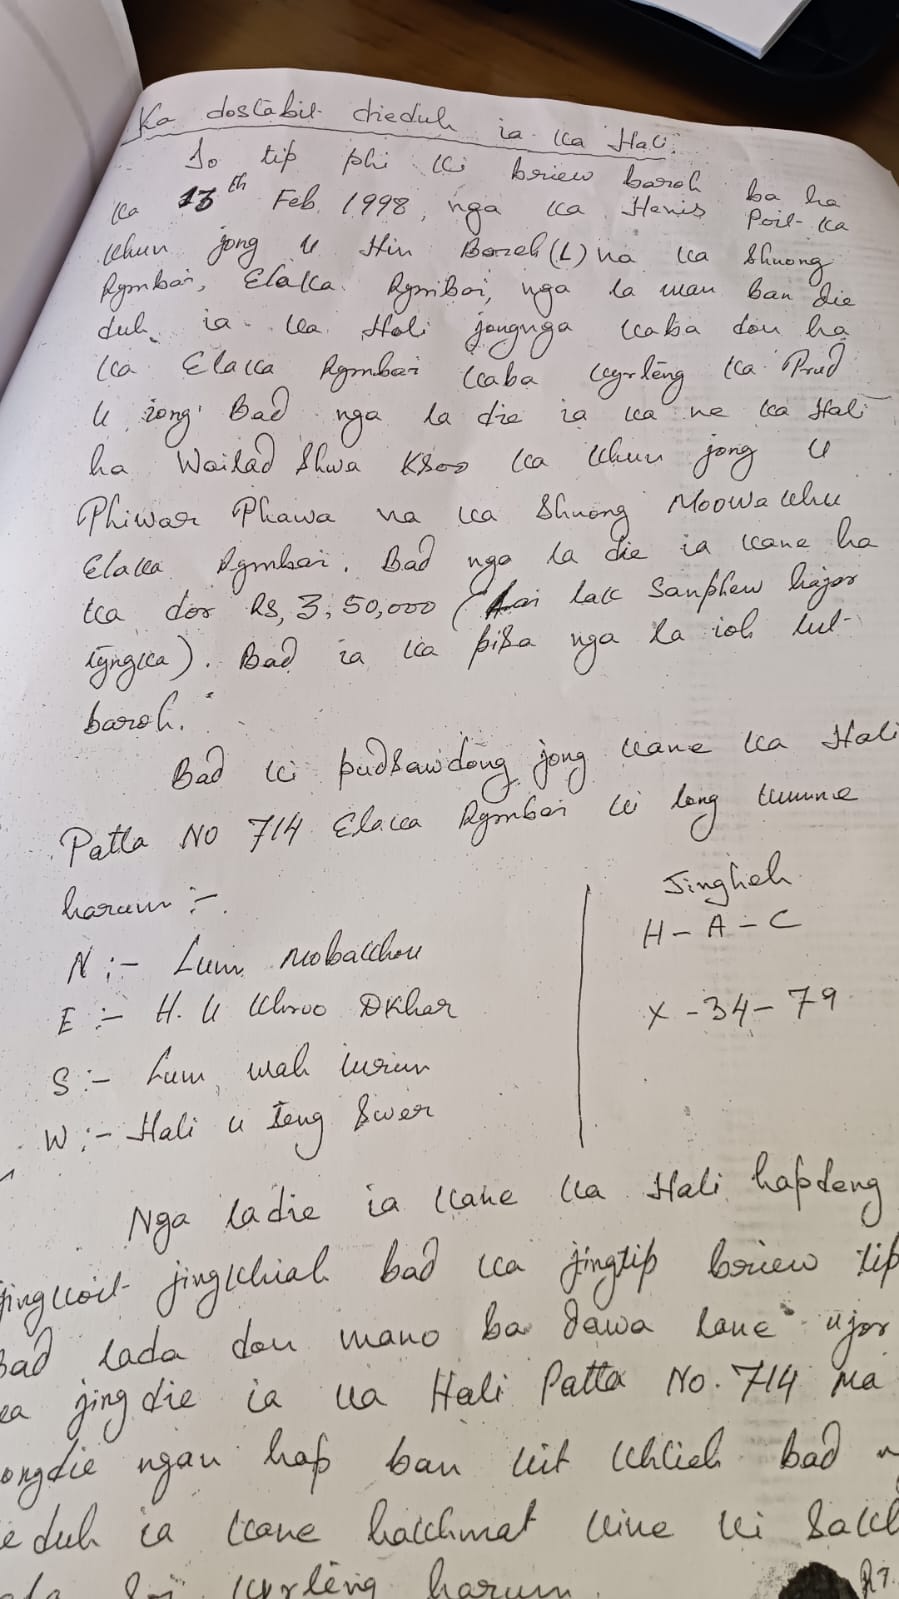 Ka dostabit dieduh ia ka Hali.
To tip phi ki briew baroh ba ha
ka 13th Feb, 1998, nga ka Henis Poit ka
khun jong u Hin Bareh (L) na ka Shnong
Rymbai, Elaka Rymbai, nga la man ban die
duh ia ka Hali jongnga kaba don ha
ka Elaka Rymbai kaba kyrteng ka Prud
u iong. Bad nga la die ia ka ne ka Hali
ha Wailad Shwa Ksoo ka khun jong u
Phiwar Phawa na ka Shnong Moowakhu
Elaka Rymbai. Bad nga la die ia kane ha
ka dor Rs, 3,50,000 (lai lak Sanphew hajar
tyngka). Bad ia ka pisa nga la ioh lut
baroh.
Bad ki pudsawdong jong kane ka Hali
Patta No 714 Elaka Rymbai ki long kumne
harum :-
Jingheh
H - A - C
N :- Lum Mobakhon
E :- H. U Khroo Dkhar
X - 34 - 79
S :- Lum, wah
W :- Hali u Teng Swer
Nga ladie ia kane ka Hali hapdeng
jingkoit jingkhiah bad ka jingtip briew tip
bad lada don mano ba dawa lane ujor
ia jingdie ia ka Hali Patta No. 714 ma
ongdie ngan hap ban kit khlieh bad
duh ia kane hakhmat kine ki
kyrteng harum.